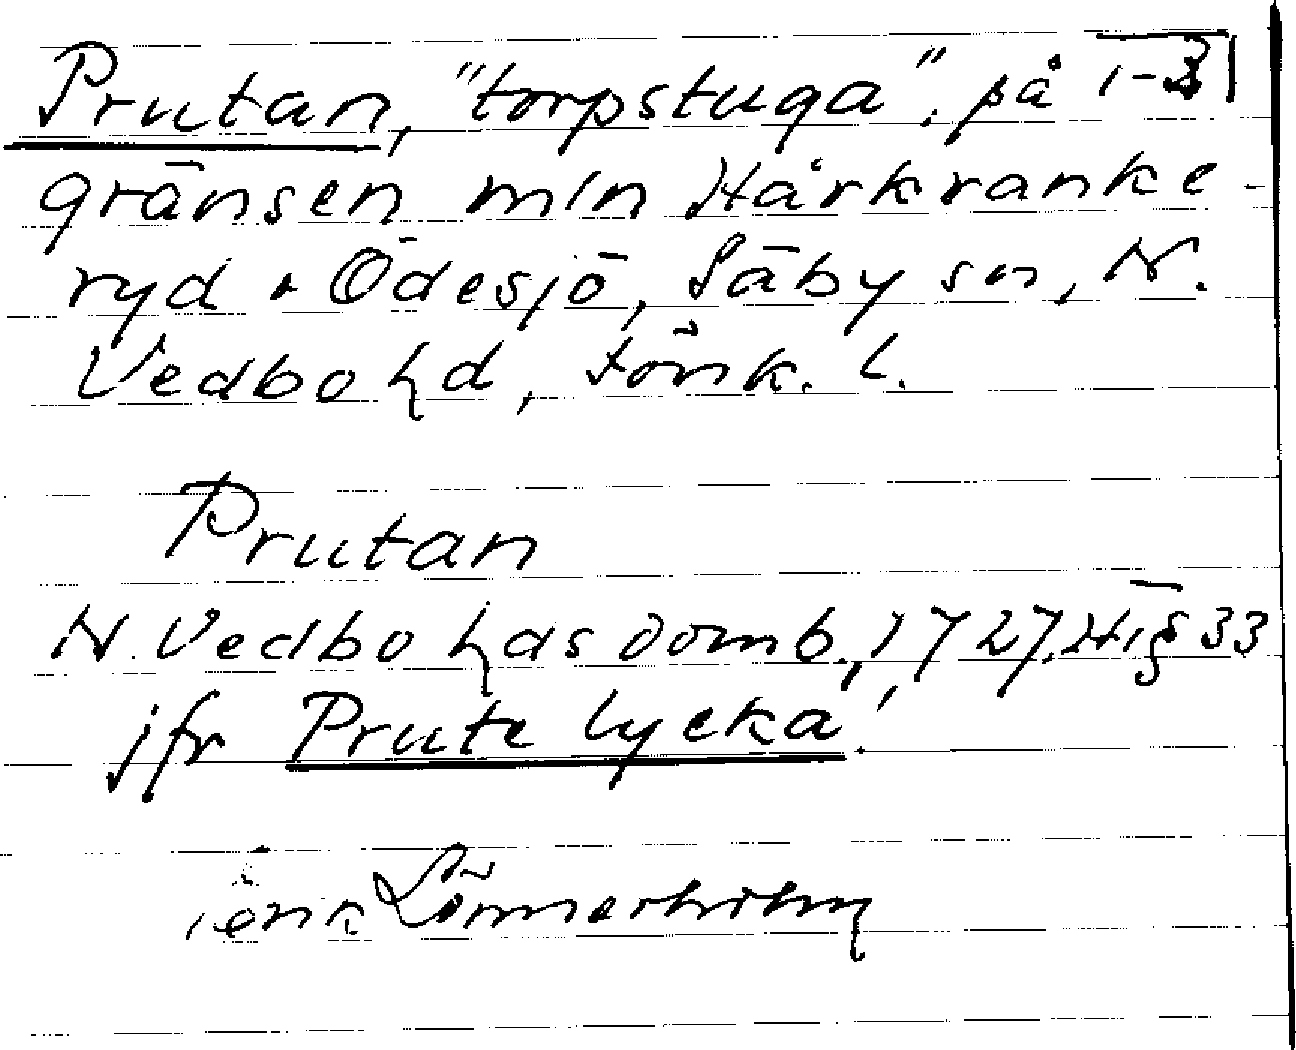 Prutan, "torpstuga". på 1-3
gränsen m/n Hårkranke-
ryd o Ödesjö, Säby sn, N.
Vedbo hd, Jönk. l.
Prutan
N. Vedbo hds domb., 1727, H1§33
jfr Prute lycka!
Erik Lönnerholm